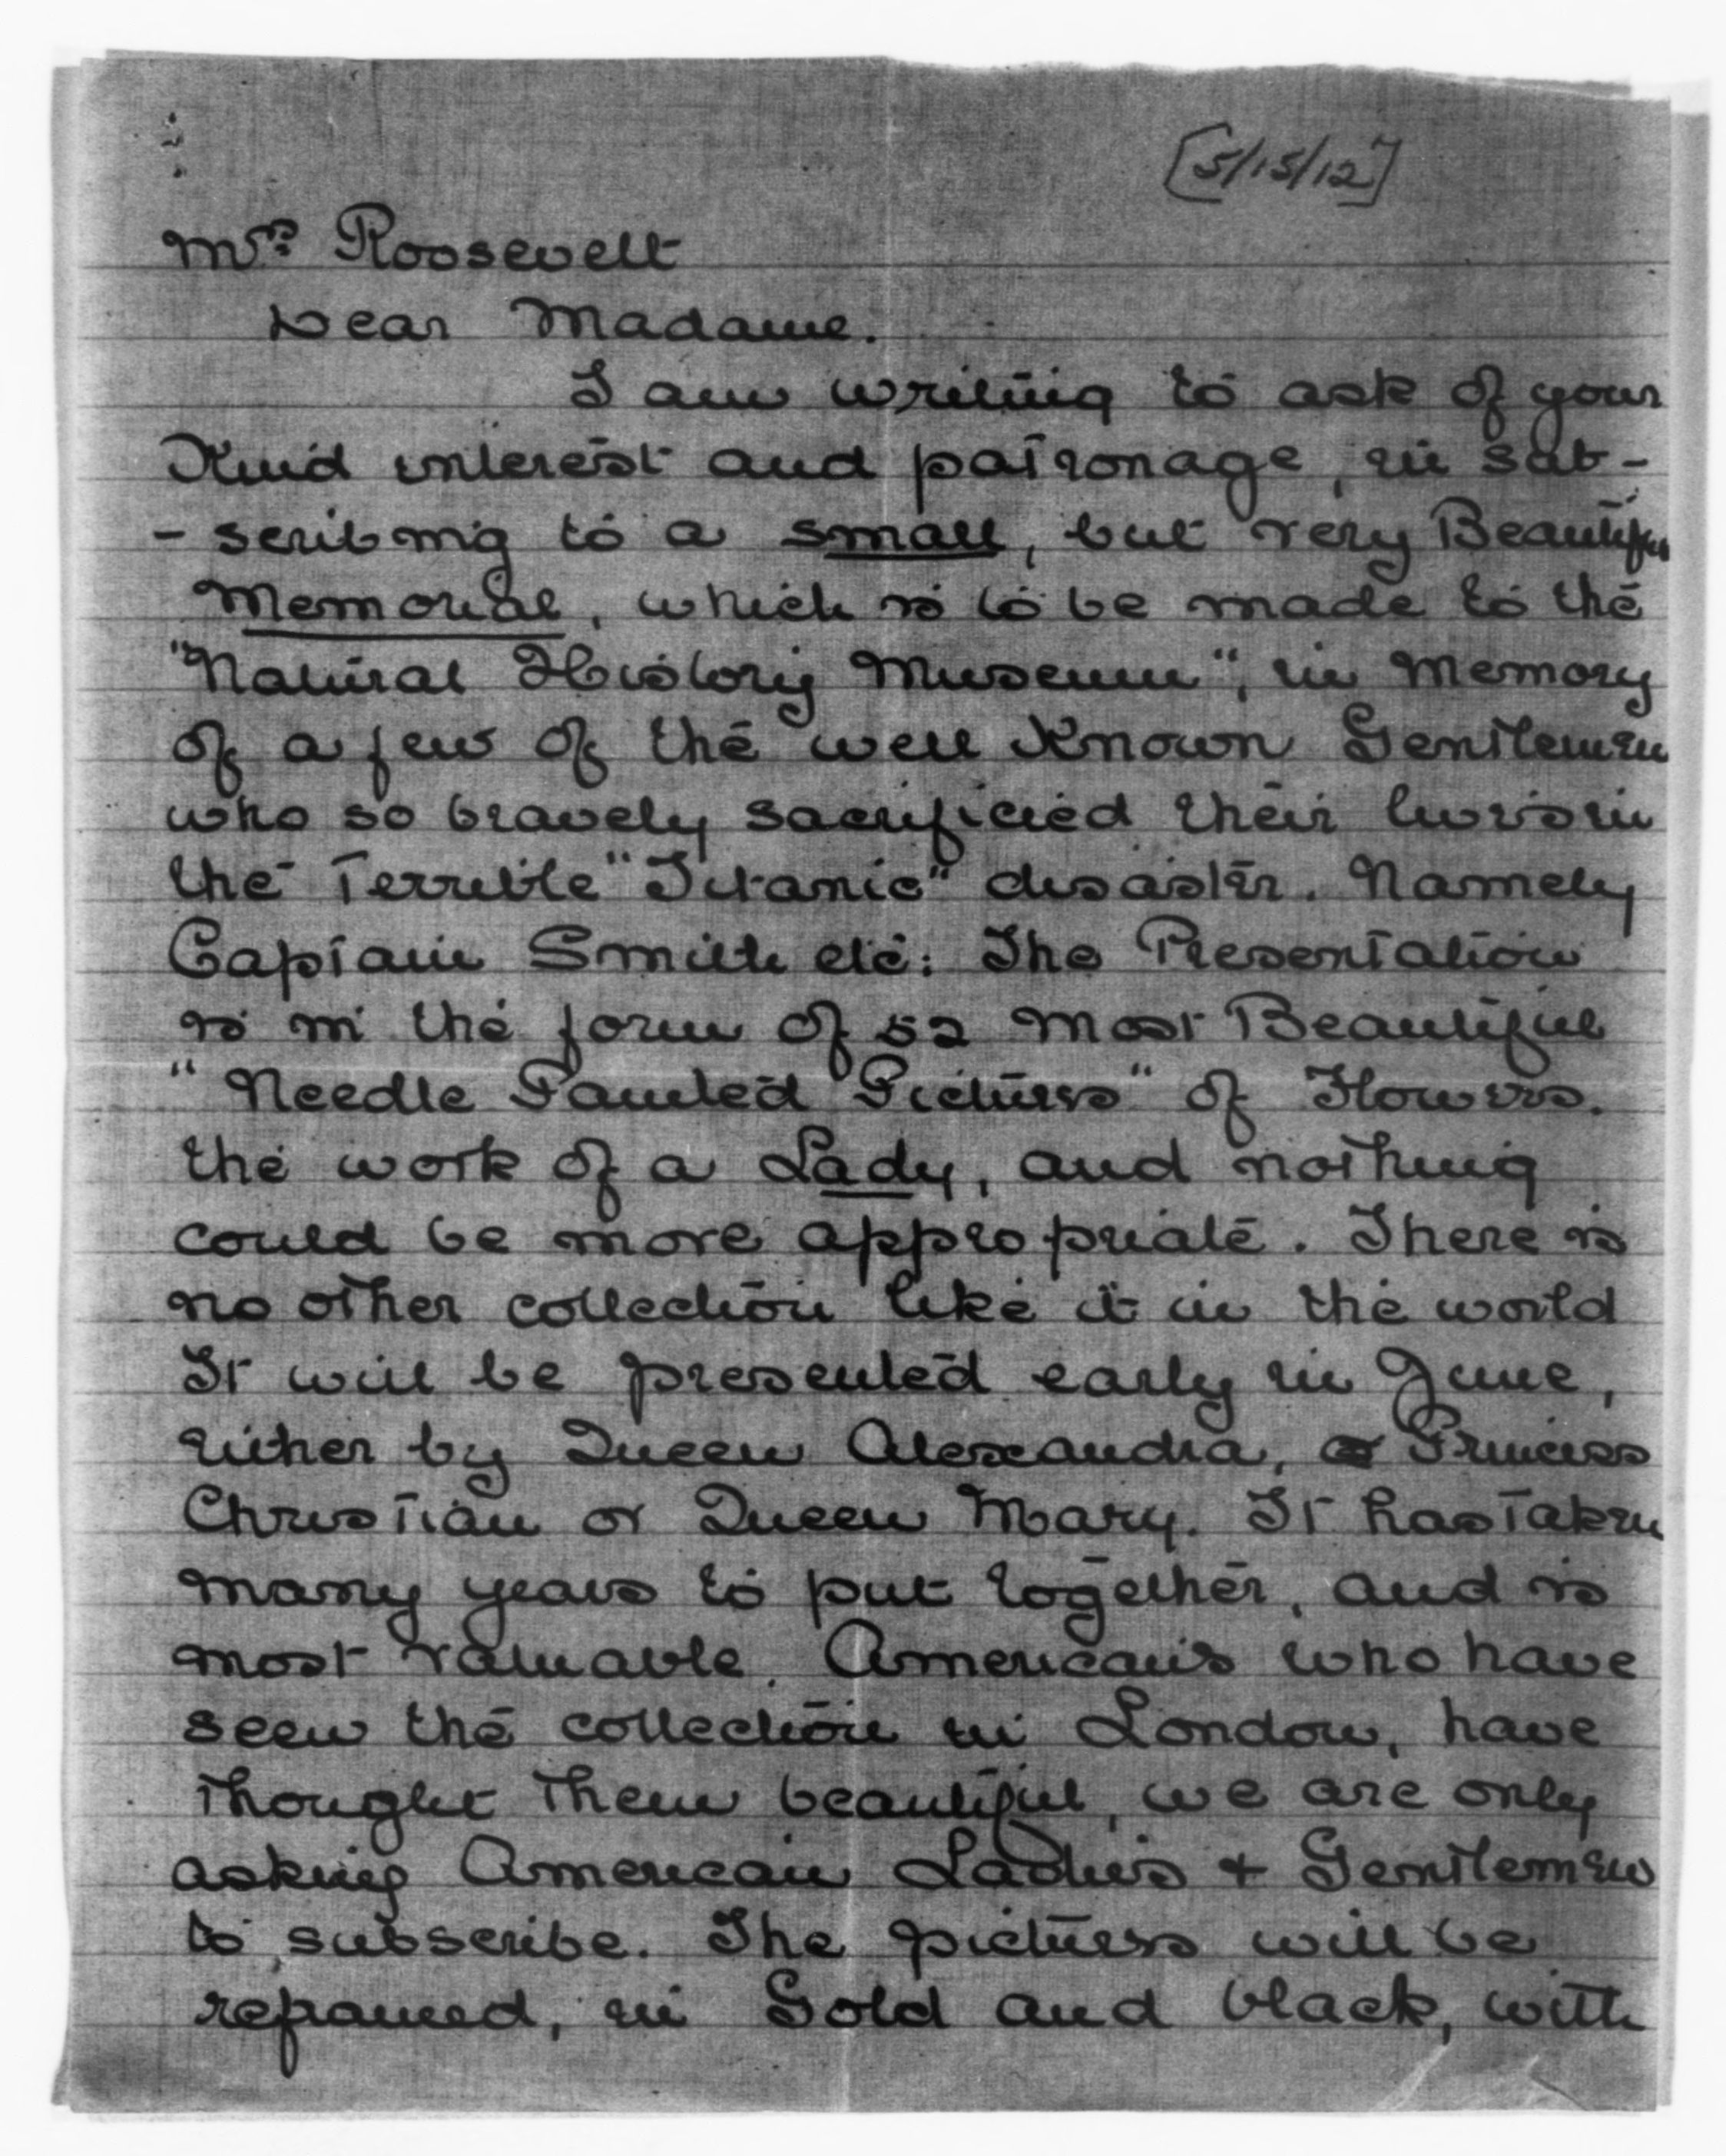 [5/15/12]
Mrs Roosevelt
Dear Madame.
I am writing to ask of your
Kind interest and patronage, in sub-
- scribing to a small, but very Beautiful
Memorial, which is to be made to the
"Natural History Museum", in Memory
of a few of the well Known Gentlemen
who so bravely sacrificied their lives in
the Terrible "Titanic" disaster. Namely
Captain Smith etc: The Presentation
is in the form of 52 most Beautiful
"Needle Painted Pictures" of Flowers.
the work of a Lady, and nothing
could be more appropriate. There is
no other collection like it in the world
It will be presented early in June,
either by Queen Alexandra, Princess
Christian or Queen Mary. It has taken
many years to put together, and is
most valuable. Americans who have
seen the collection in London, have
thought them beautiful, we are only
asking American Ladies + Gentlemen
to subscribe. The pictures will be
reframed, in Gold and black, with